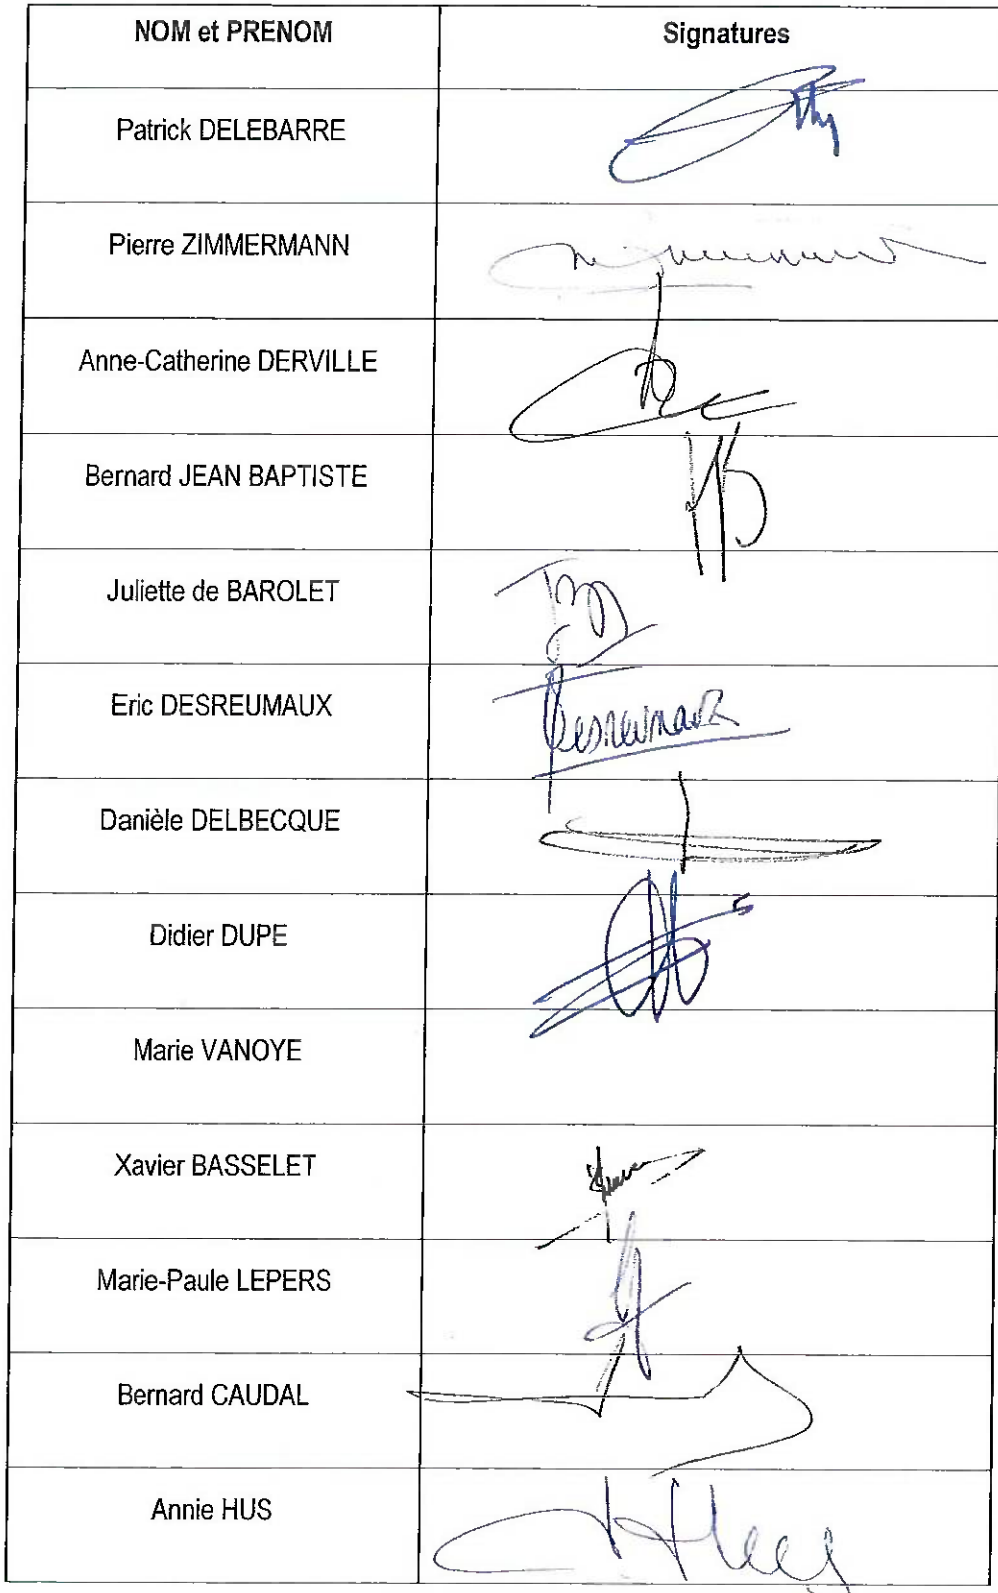 NOM et PRENOM
Signatures
Patrick DELEBARRE
Pierre ZIMMERMANN
Anne-Catherine DERVILLE
Bernard JEAN BAPTISTE
Juliette de BAROLET
Eric DESREUMAUX
Desreumaux
Danièle DELBECQUE
Didier DUPE
Marie VANOYE
Xavier BASSELET
Marie-Paule LEPERS
Bernard CAUDAL
Annie HUS